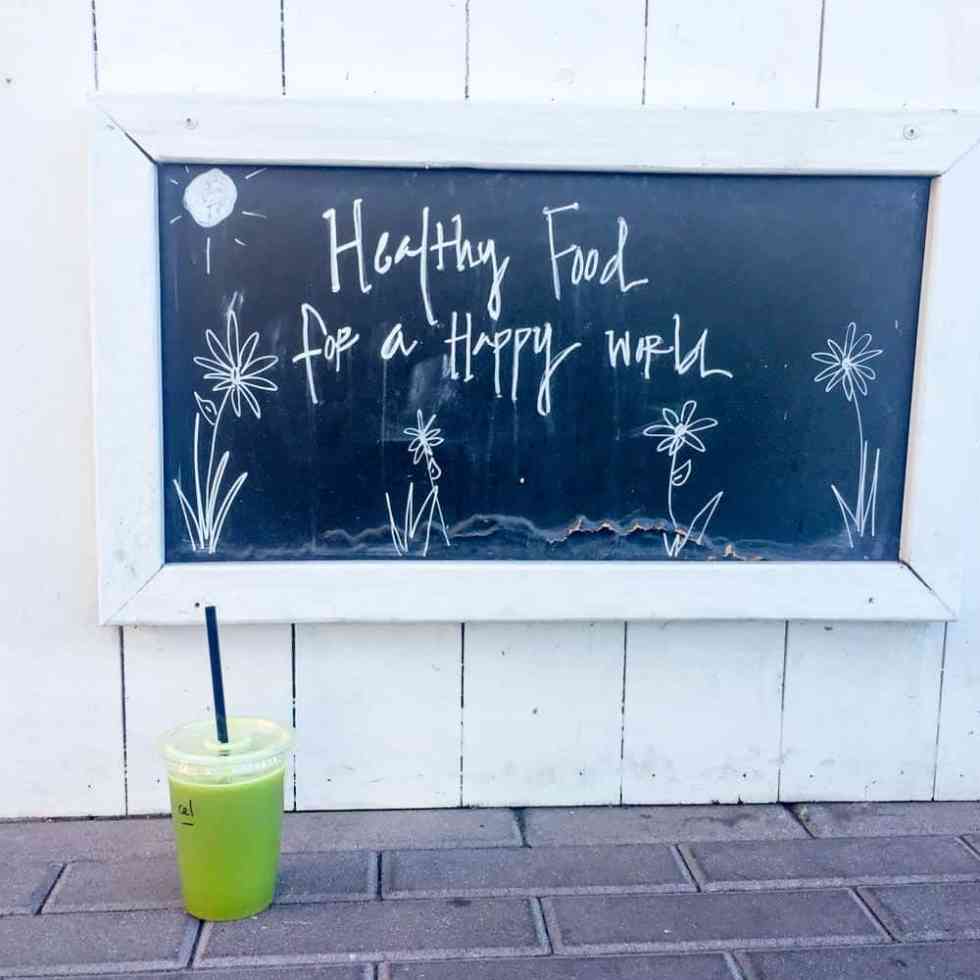 Healthy Food
for a Happy world
cel